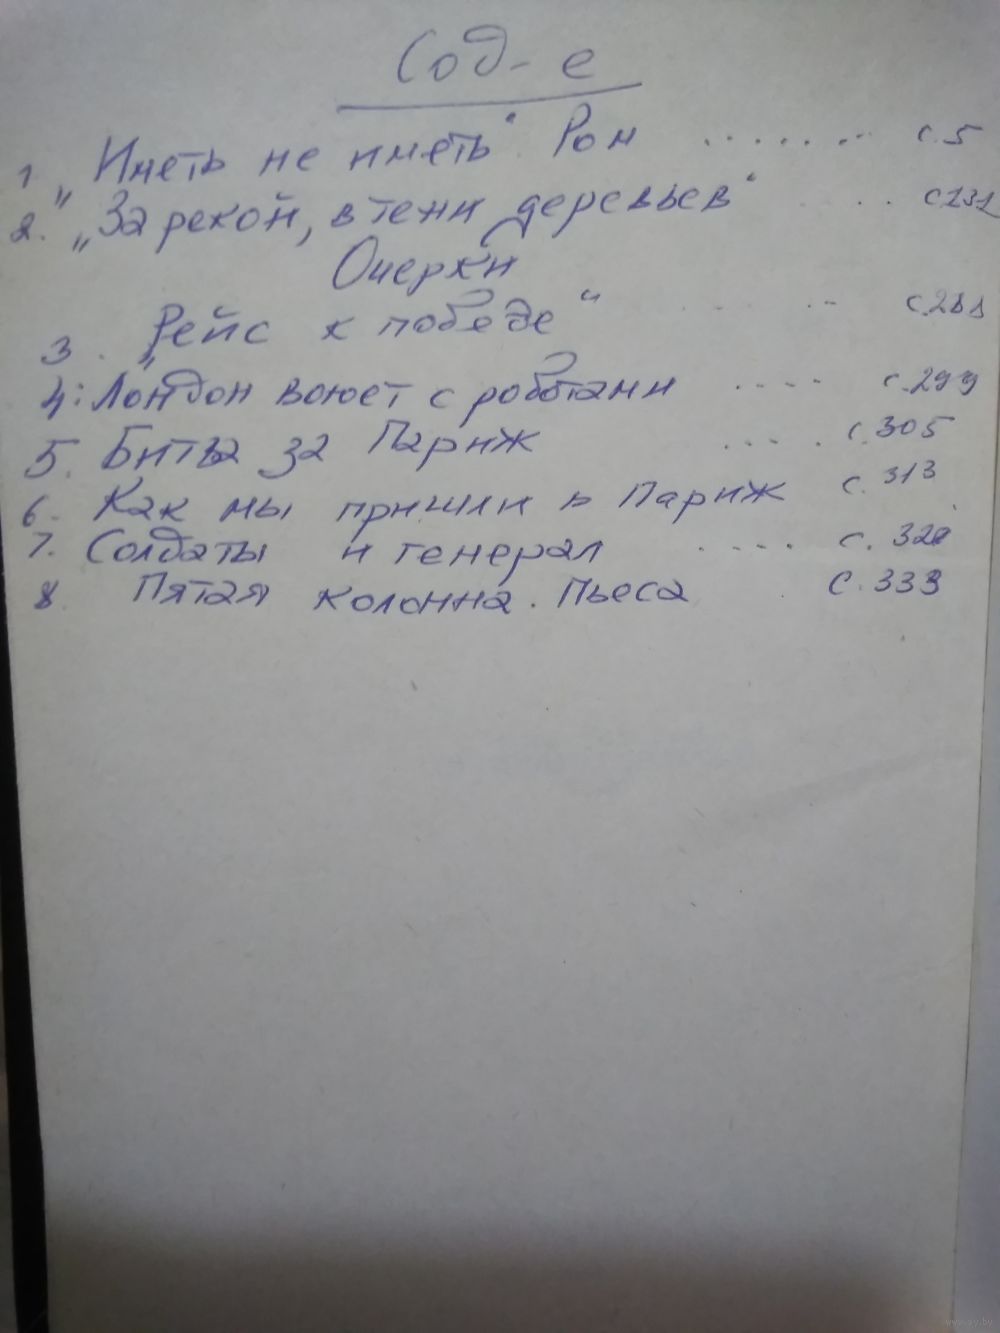 Сод-е
1 „Иметь не иметь" Ром ....... с.5
2. „За рекой, в тени деревьев" .... с231
Очерки
3. „Рейс к победе" с.281
4. Лондон воюет с роботами .... с.299
5. Битва за Париж .... с.305
6. Как мы пришли в Париж с. 313
7. Солдаты и генерал .... с. 320
8. Пятая колонна. Пьеса с. 333
www.ay.by